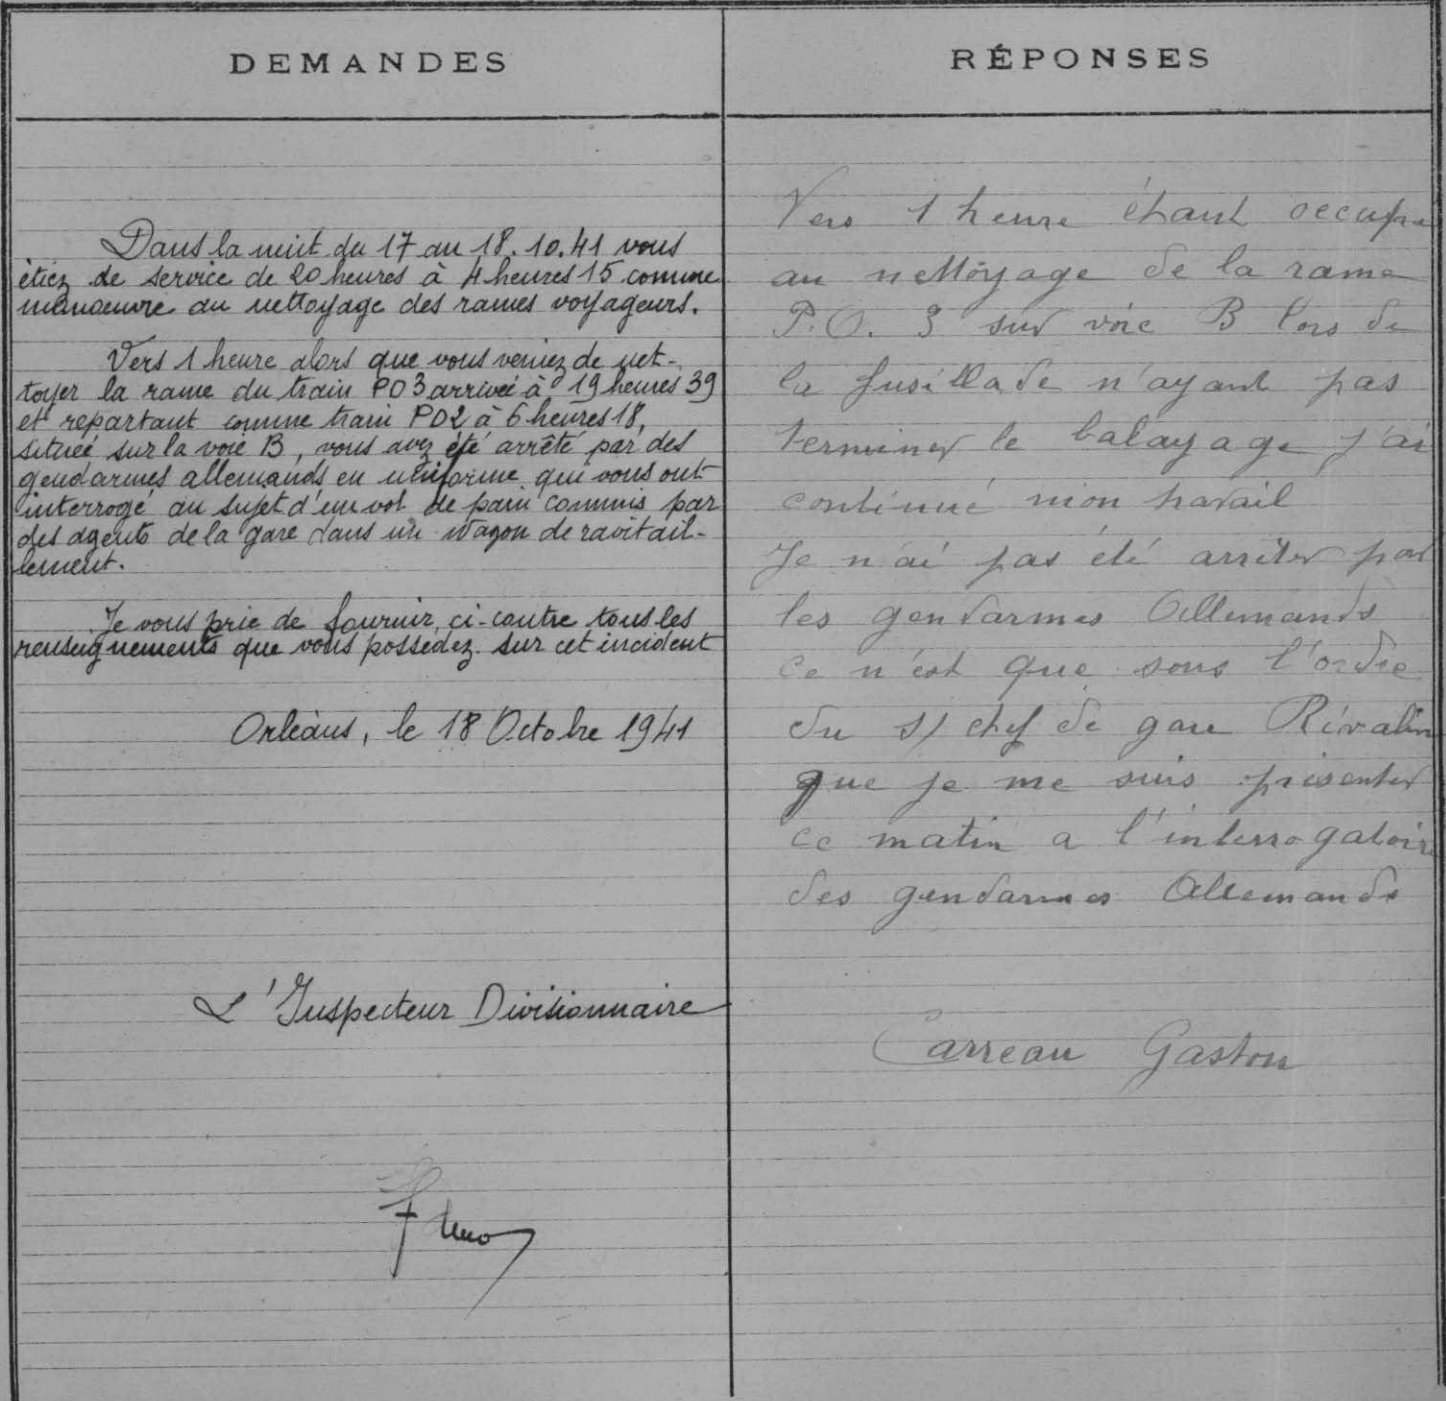 DEMANDES
Dans la nuit du 17 au 18.10.41 vous
étiez de service de 20 heures à 4 heures 15 comme
manoeuvre au nettoyage des rames voyageurs.
Vers 1 heure alors que vous veniez de net-
toyer la rame du train PO3 arrivée à 19 heures 39
et repartant comme train PO2 à 6 heures 18,
située sur la voie B, vous avez été arrêté par des
gendarmes allemands en uniforme qui vous ont
interrogé au sujet d'un vol de pain commis par
des agents de la gare dans un wagon de ravitail-
lement.
Je vous prie de fournir ci-contre tous les
renseignements que vous possédez sur cet incident
Orléans, le 18 Octobre 1941
L'Inspecteur Divisionnaire
RÉPONSES
Vers 1 heure étant occupé
au nettoyage de la rame
P.O. 3 sur voie B lors de
la fusillade n'ayant pas
terminer le balayage j'ai
continué mon travail
Je n'ai pas été arrêter par
les gendarmes Allemands
Ce n'est que sous l'ordre
du s/ chef de gare Rivalin
que je me suis présenter
ce matin a l'interrogatoire
des gendarmes Allemands
Carreau Gaston